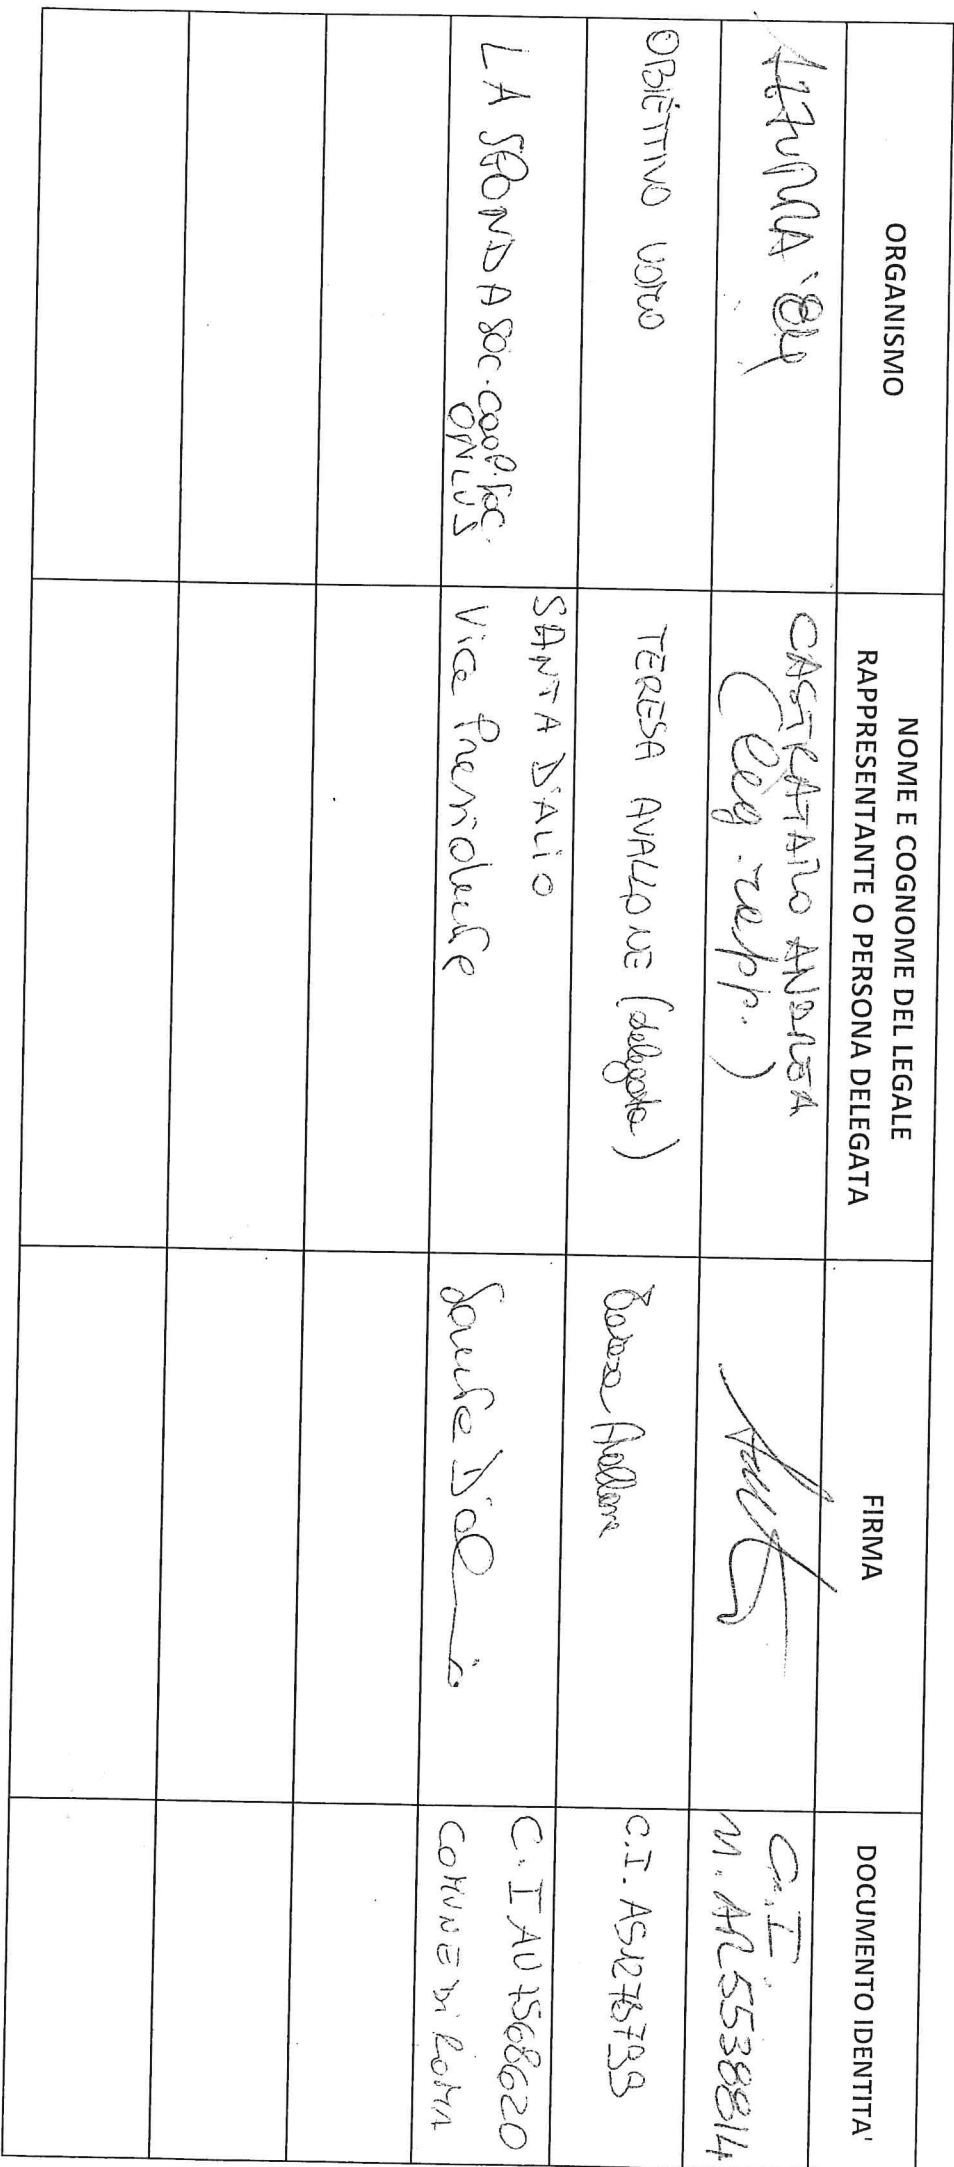 ORGANISMO
NOME E COGNOME DEL LEGALE
RAPPRESENTANTE O PERSONA DELEGATA
FIRMA
DOCUMENTO IDENTITA'
AZZURRA '84
CASTRATARO ANDREA
(leg. rapp.)
C.I.
N. AR5538814
OBIETTIVO UOMO
TERESA AVALLONE (delegata)
Teresa Avallone
C.I. AS1278799
LA SPONDA SOC. COOP. SOC.
ONLUS
SANTA D'ALIO
Vice Presidente
Santa D'Alio
C.I AU 7568620
COMUNE DI ROMA